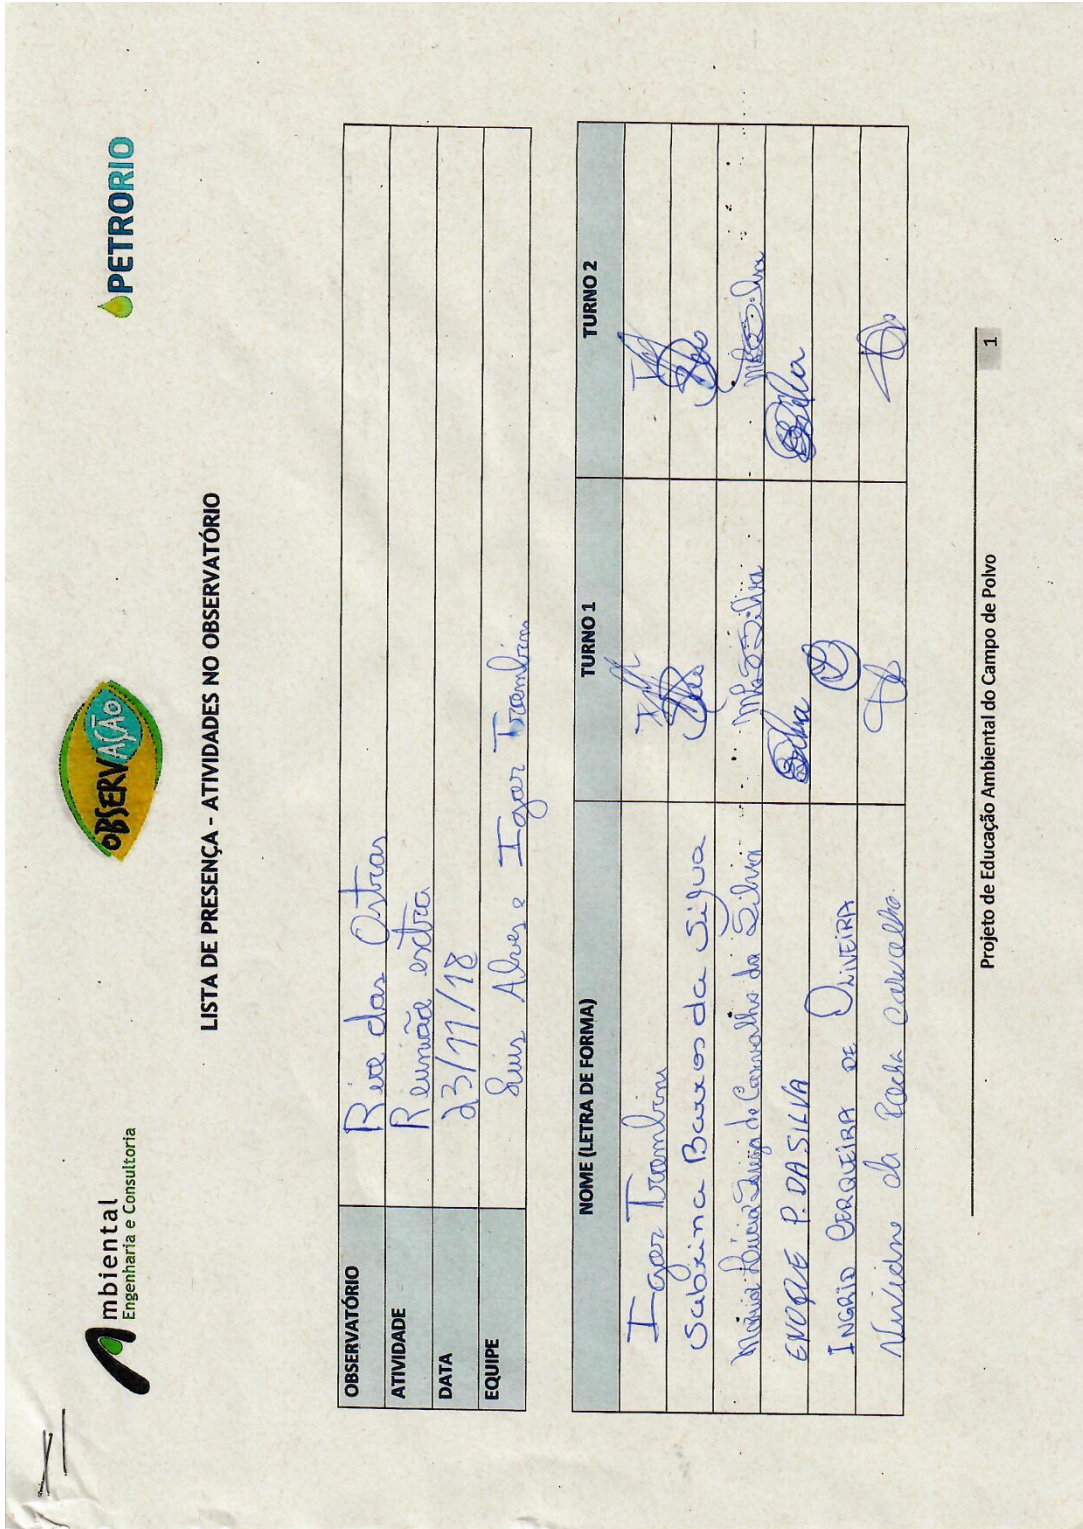 Ambiental
Engenharia e Consultoria
OBSERVAÇÃO
PETRORIO
LISTA DE PRESENÇA - ATIVIDADES NO OBSERVATÓRIO
OBSERVATÓRIO Rio das Ostras
ATIVIDADE Reunião extra
DATA 23/11/18
EQUIPE Luis Alves e Igor Trombini
NOME (LETRA DE FORMA) TURNO 1 TURNO 2
Igor Trombini
Sabrina Barros da Silva
Maria Lúcia de Carvalho da Silva
ENOQUE P. DA SILVA
INGRID CERQUEIRA DE OLIVEIRA
Viviane da Rocha Carvalho.
Projeto de Educação Ambiental do Campo de Polvo 1